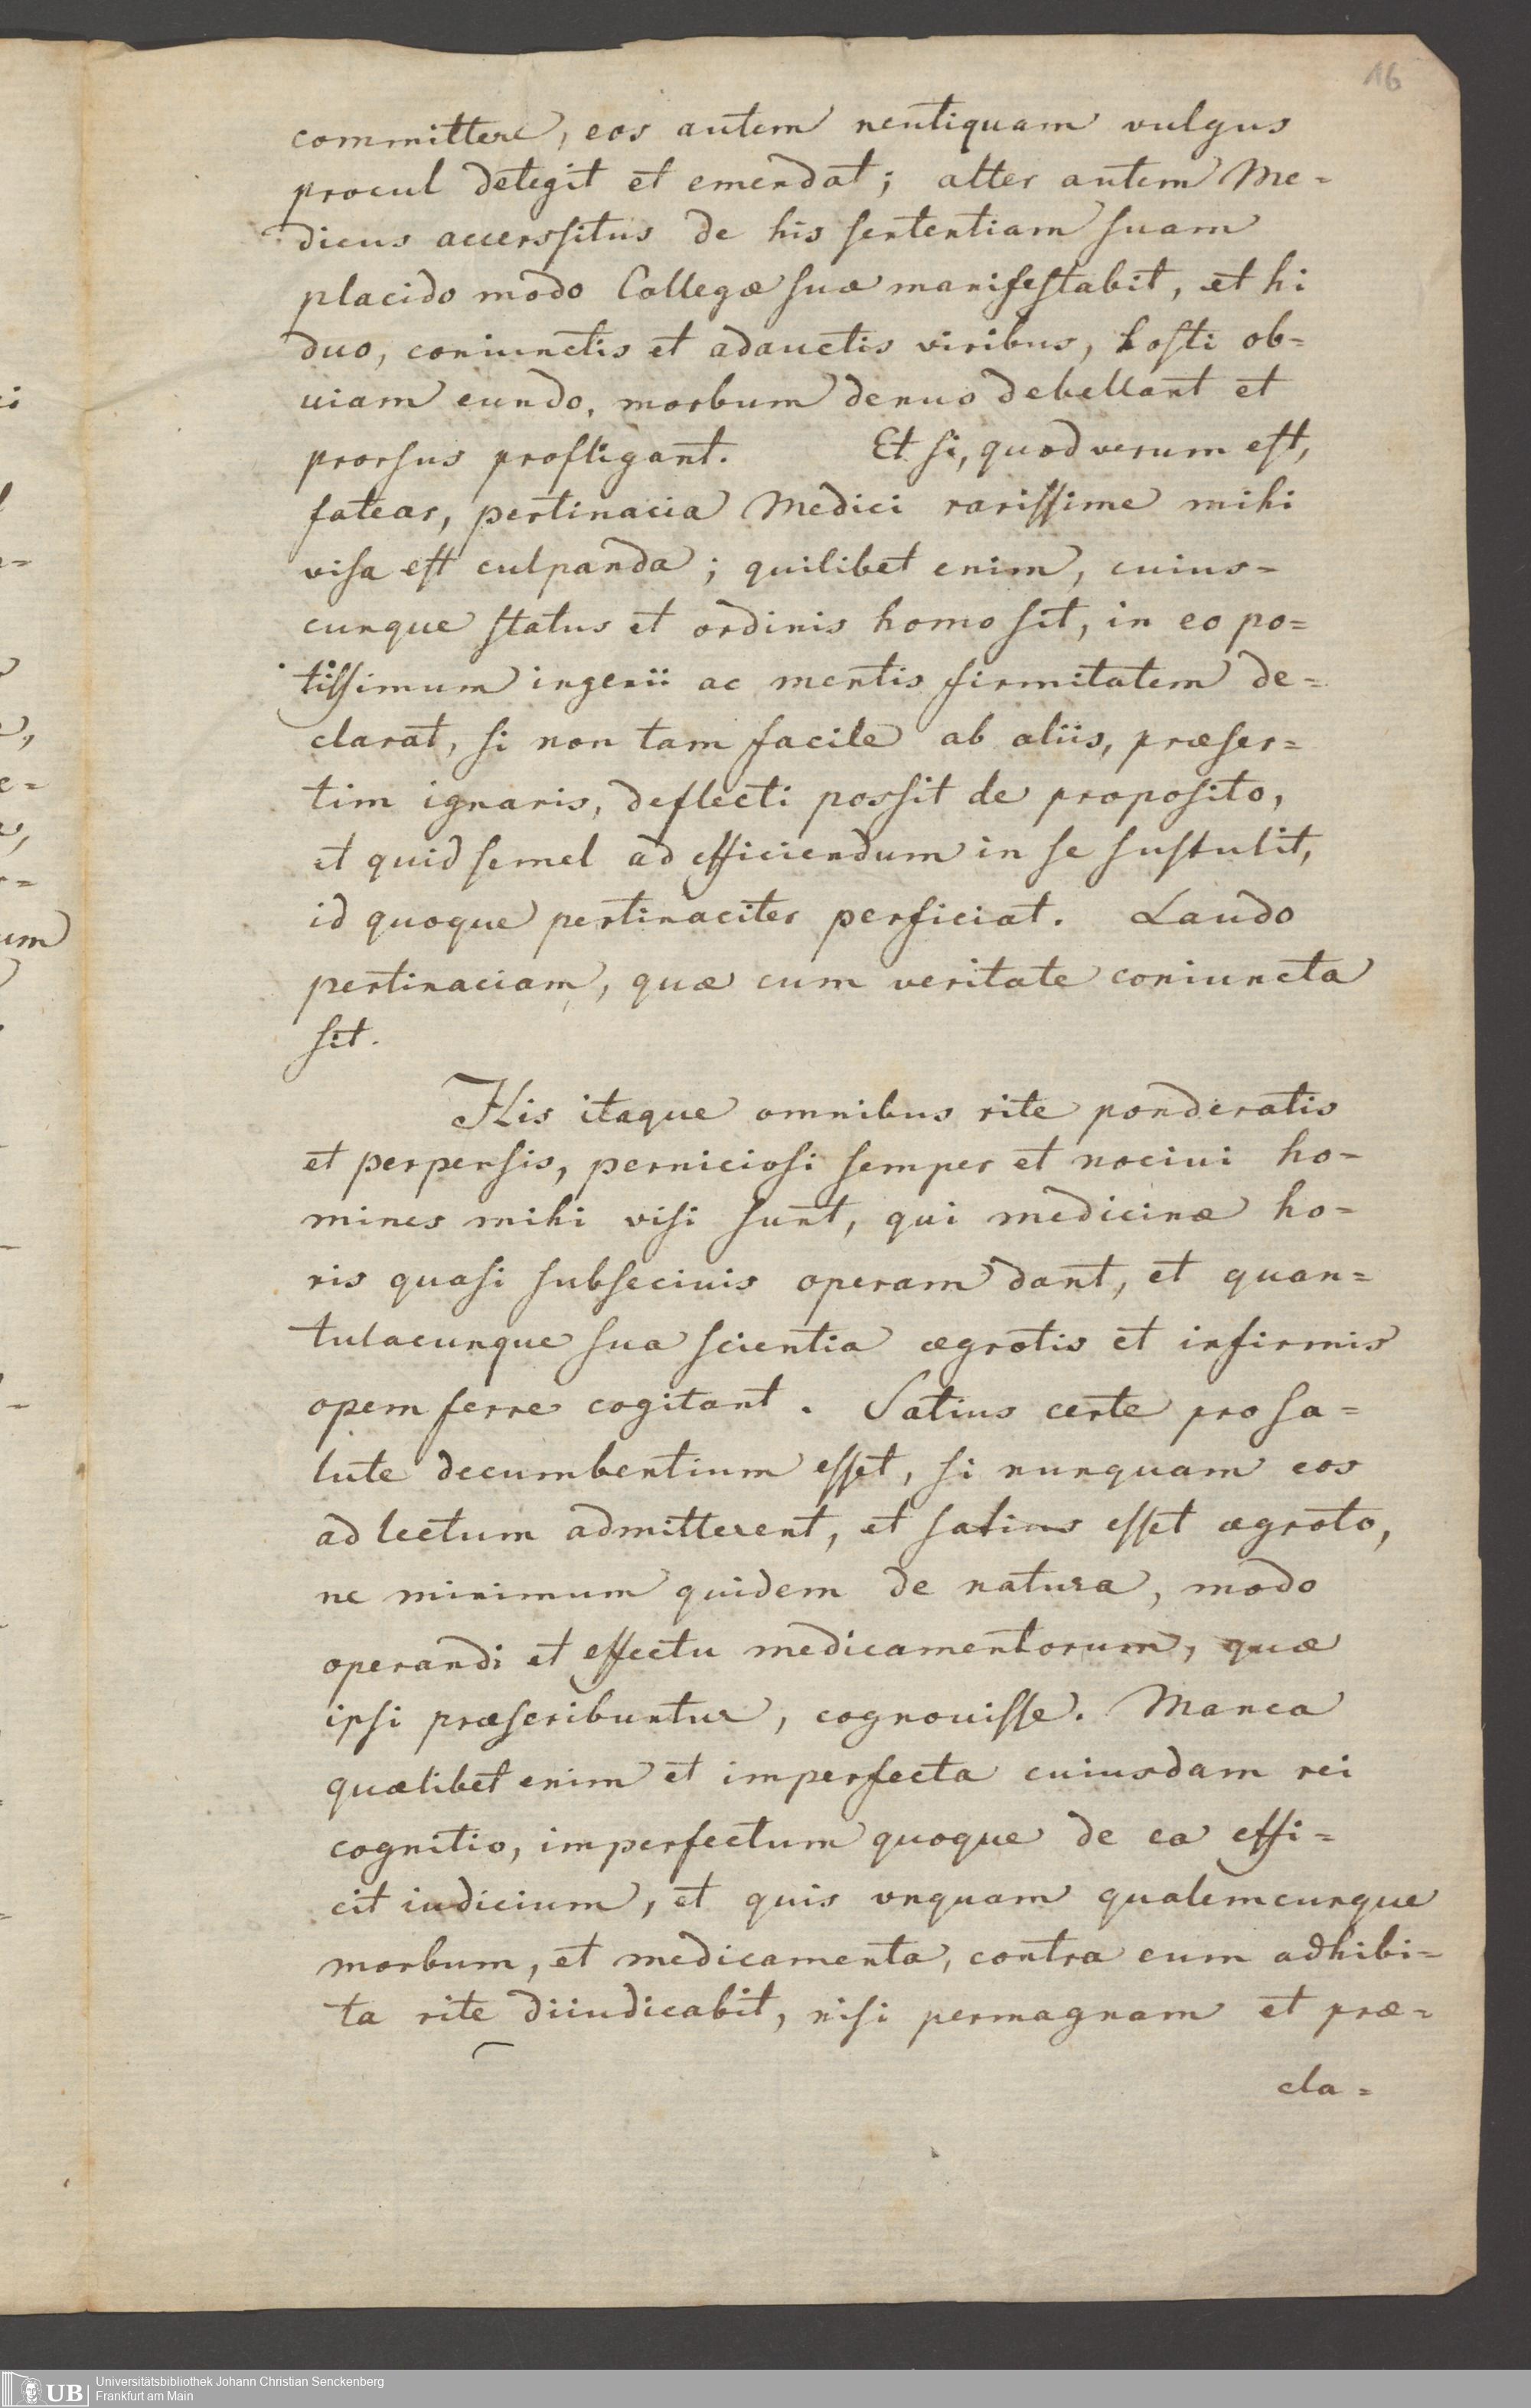 16
committere, eos autem neutiquam vulgus
procul detegit et emendat; alter autem Me=
dicus accerssitus de his sententiam suam
placido modo Collegæ suæ manifestabit, et hi
duo, coniunctis et adauctis viribus, hosti ob=
uiam eundo, morbum denuo debellant et
prorsus profligant. Et si, quod verum est,
fatear, pertinacia Medici rarissime mihi
visa est culpanda; quilibet enim, cuius=
cunque status et ordinis homo sit, in eo po=
tissimum ingenii ac mentis firmitatem de=
clarat, si non tam facile ab aliis, præser=
tim ignaris, deflecti possit de proposito,
et quid semel ad efficiendum in se sustulit,
id quoque pertinaciter perficiat. Laudo
pertinaciam, quæ cum veritate coniuncta
sit.
His itaque omnibus rite ponderatis
et perpensis, perniciosi semper et nociui ho=
mines mihi visi sunt, qui medicinæ ho=
ris quasi subseciuis operam dant, et quan=
tulacunque sua scientia ægrotis et infirmis
opem ferre cogitant. Satius certe pro sa=
lute decumbentium esset, si nunquam eos
ad lectum admitterent, et satius esset ægroto,
ne minimum quidem de natura, modo
operandi et effectu medicamentorum, quæ
ipsi præscribuntur, cognouisse. Manca
quælibet enim et imperfecta cuiusdam rei
cognitio, imperfectum quoque de ea effi=
cit iudicium, et quis vnquam qualemcunque
morbum, et medicamenta, contra eum adhibi=
ta rite diiudicabit, nisi permagnam et præ=
cla=
UB
Universitätsbibliothek Johann Christian Senckenberg
Frankfurt am Main